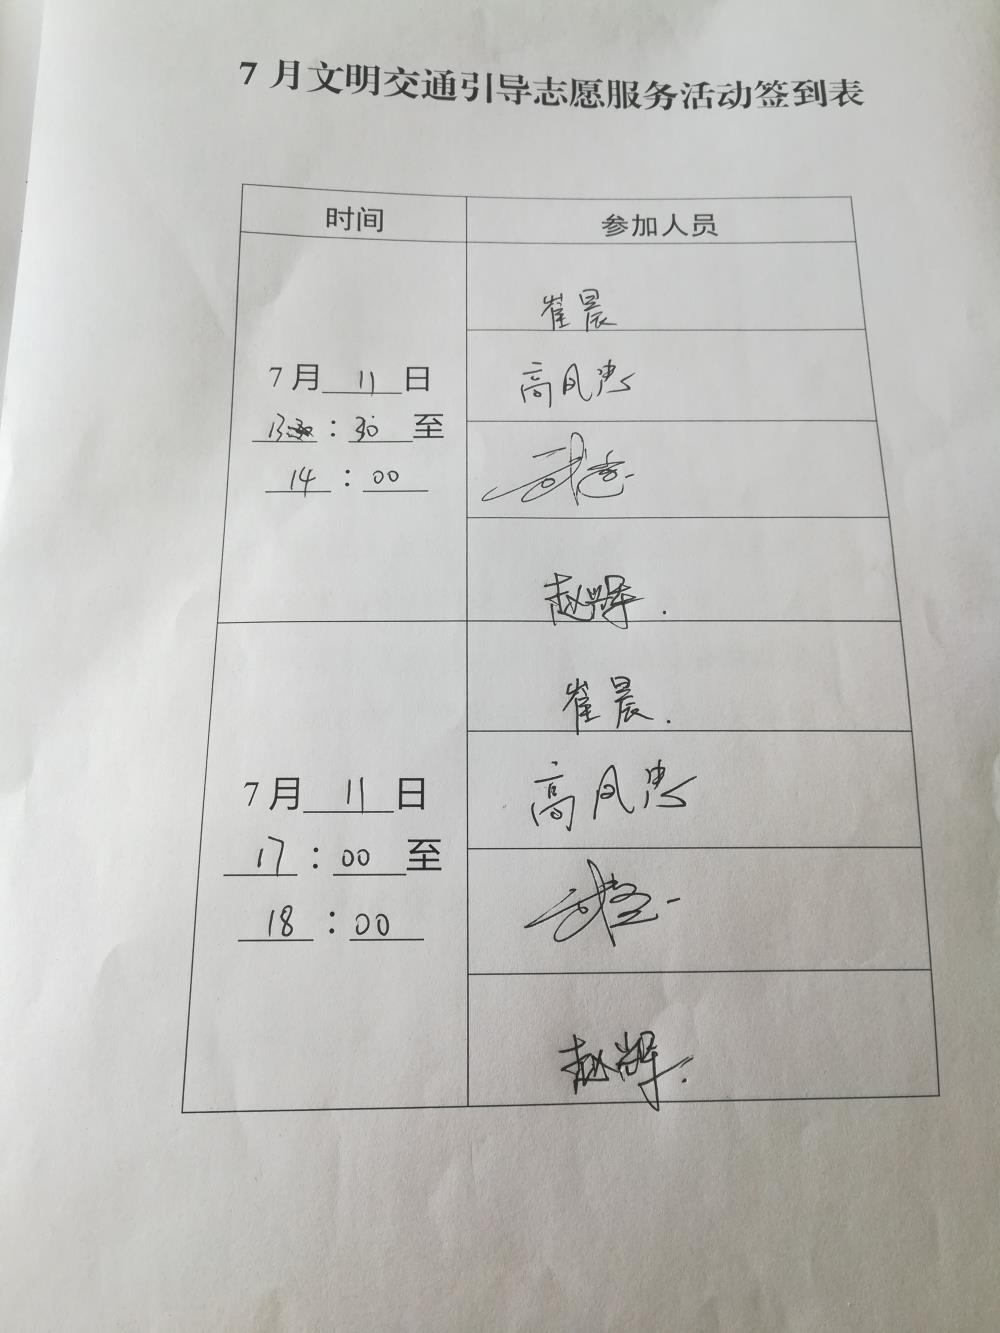 7月文明交通引导志愿服务活动签到表
时间 参加人员
崔晨
高凤忠
7月 11 日
13 : 30 至
14 : 00
赵辉
崔晨.
高凤忠
7月 11 日
17 : 00 至
18 : 00
赵辉.